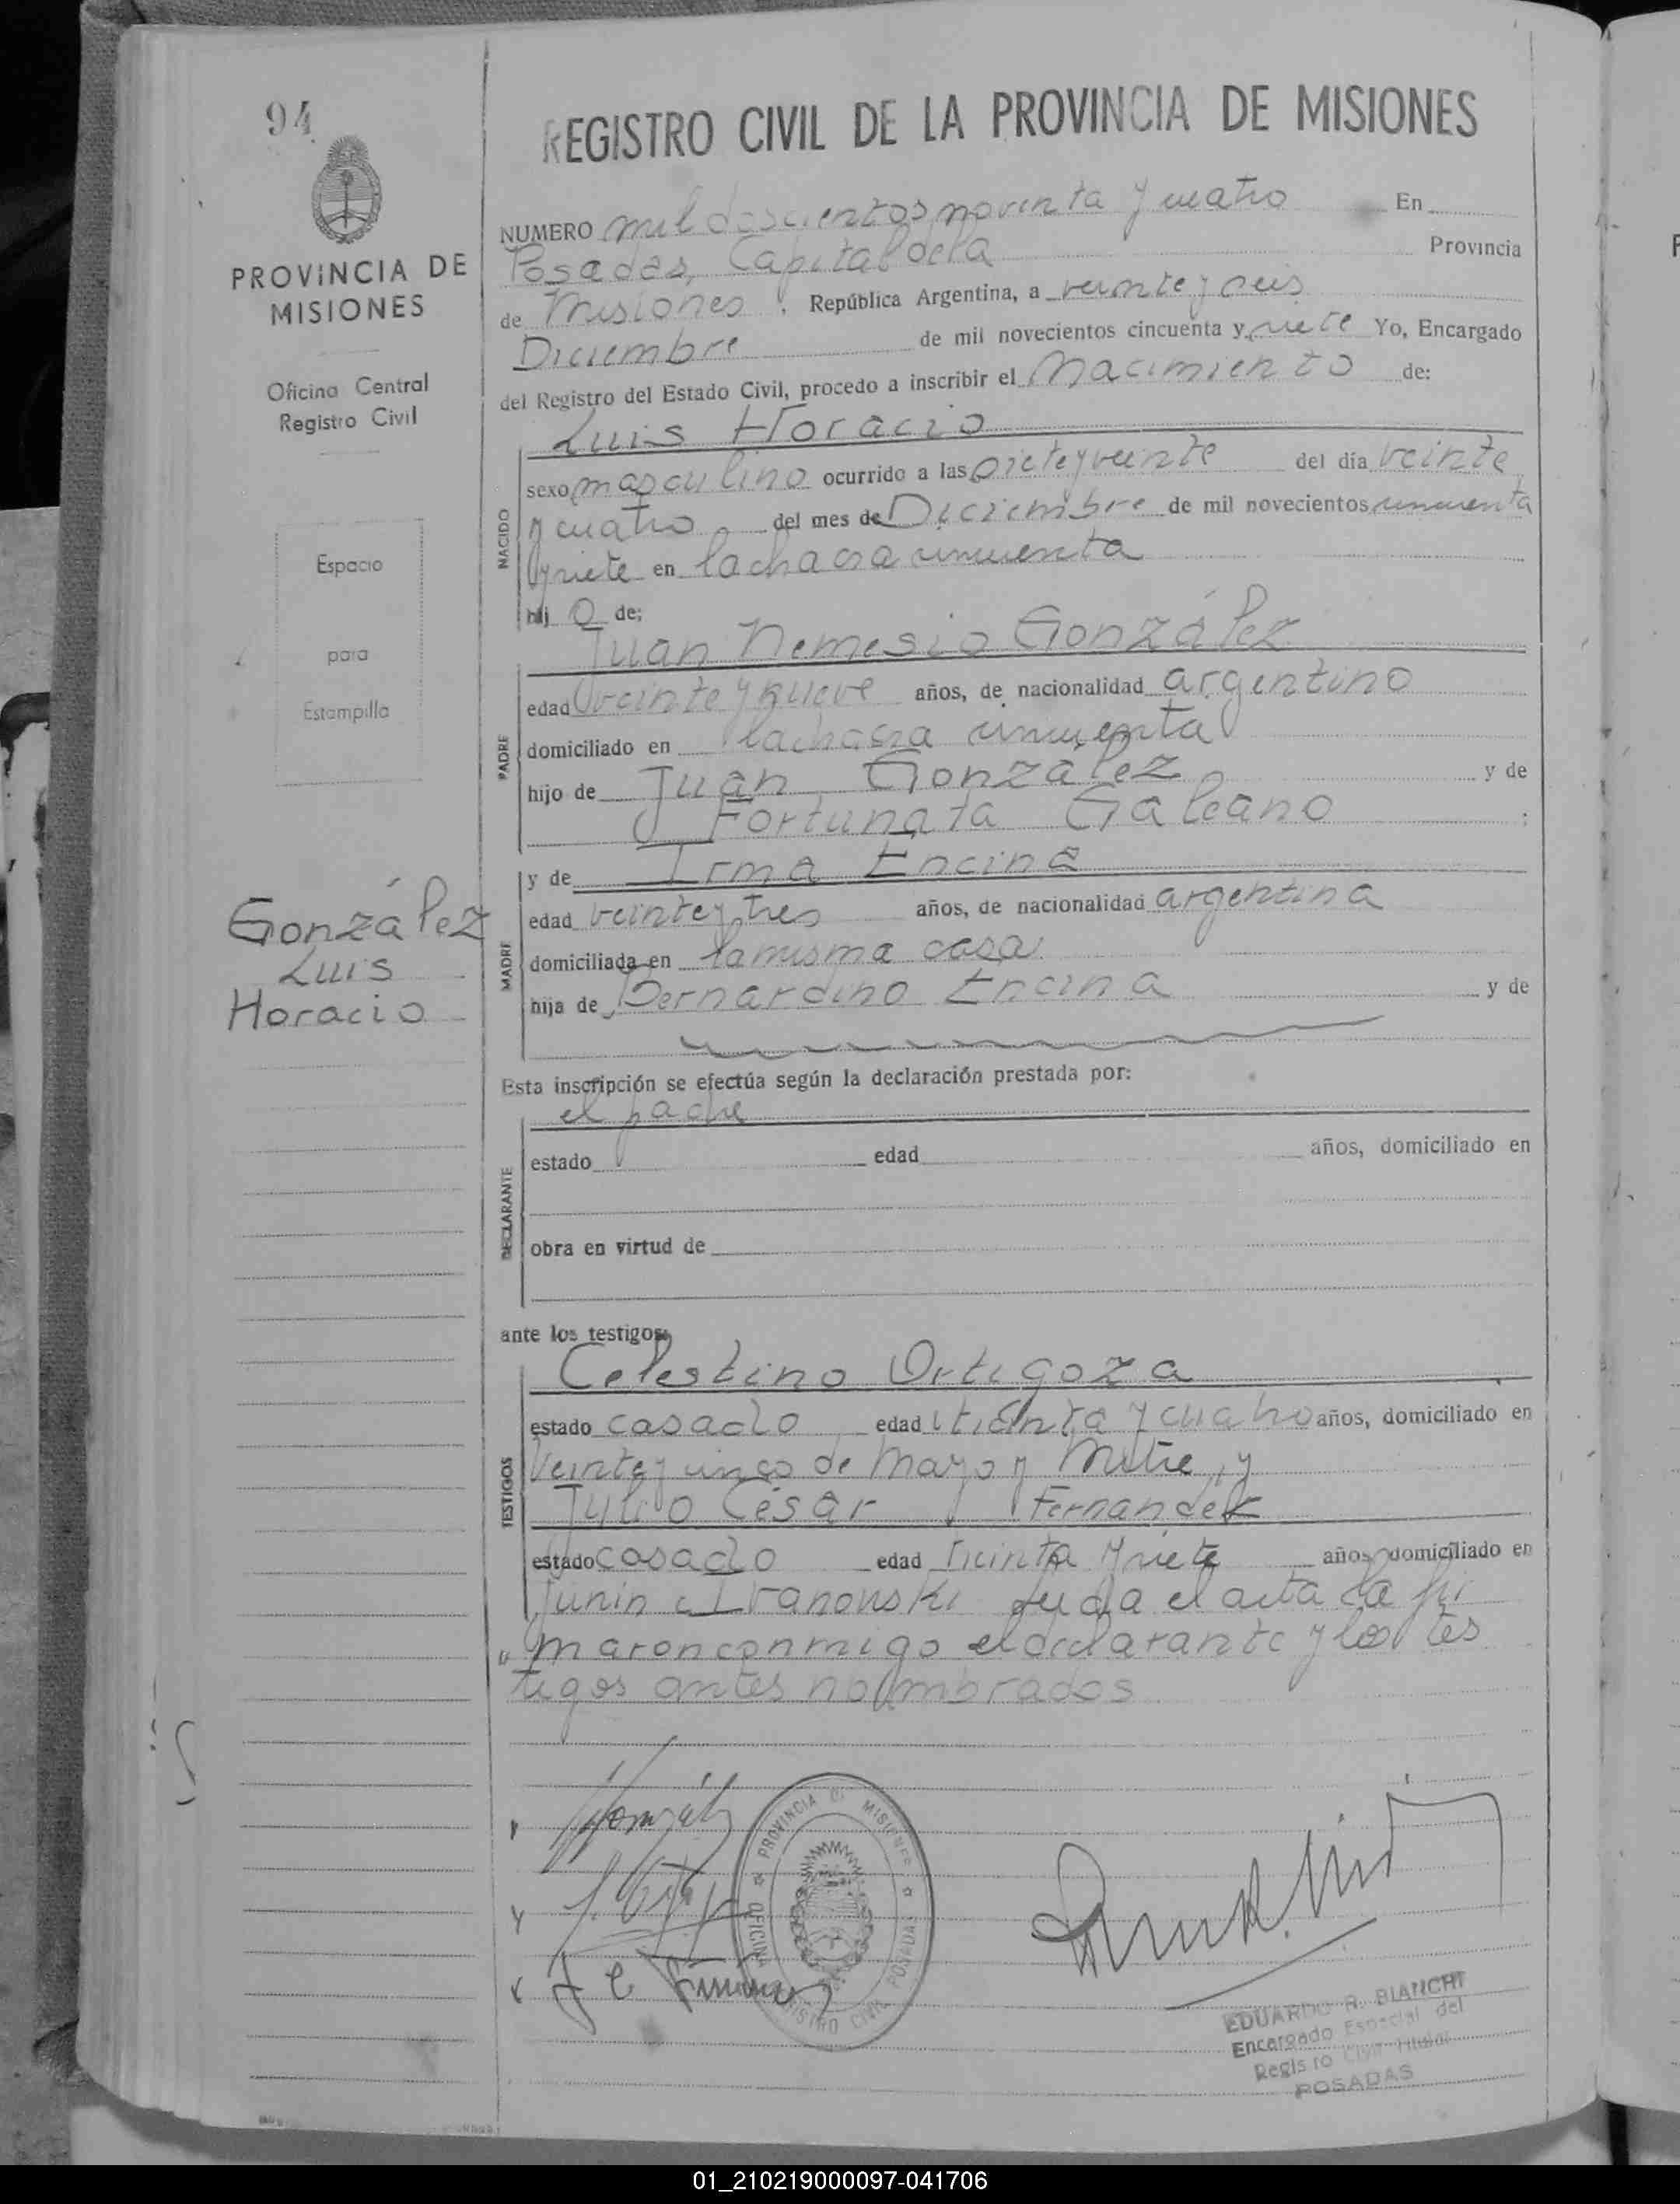 94
PROVINCIA DE
MISIONES
Oficina Central
Registro Civil
Espacio
para
Estampilla
González
Luis
Horacio
REGISTRO CIVIL DE LA PROVINCIA DE MISIONES
NUMERO mil doscientos noventa y cuatro En
Posadas, Capital de la Provincia
de Misiones, República Argentina, a veinte y seis
Diciembre de mil novecientos cincuenta y siete Yo, Encargado
del Registro del Estado Civil, procedo a inscribir el Nacimiento de:
Luis Horacio
NACIDO
sexo masculino ocurrido a las siete y veinte del día veinte
y cuatro del mes de Diciembre de mil novecientos cincuenta
y siete en la chacra cincuenta
hij o de:
Juan Nemesio González
PADRE
edad veinte y nueve años, de nacionalidad argentino
domiciliado en la chacra cincuenta
hijo de Juan González y de
Fortunata Galeano :
y de Irma Encina
MADRE
edad veinte y tres años, de nacionalidad argentina
domiciliada en la misma casa
hija de Bernardino Encina y de
Esta inscripción se efectúa según la declaración prestada por:
el padre
DECLARANTE
estado edad años, domiciliado en
obra en virtud de
ante los testigos:
Celestino Ortigoza
TESTIGOS
estado casado edad treinta y cuatro años, domiciliado en
Veinte y cinco de Mayo y Mitre, y
Julio César Fernandez
estado casado edad treinta y siete años, domiciliado en
Junin e Iranouski Leída el acta la fir
maron conmigo el declarante y los tes
tigos antes nombrados
PROVINCIA DE MISIONES
OFICINA REGISTRO CIVIL POSADAS
EDUARDO R. BIANCHI
Encargado Especial del
Registro Civil Titular
POSADAS
01_210219000097-041706